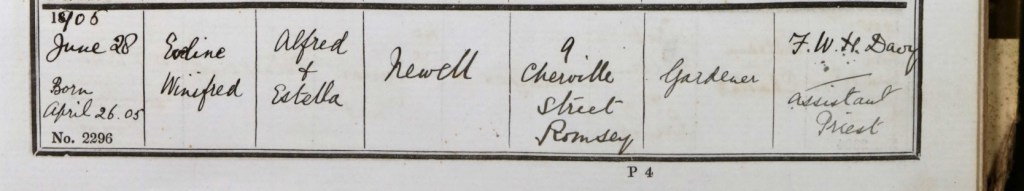 1905
June 28
Born
April 26.05
No. 2296
Eveline
Winifred
Alfred
&
Estella
Newell
9
Cherville
Street
Romsey
Gardener
F. W. H. Davy
Assistant
Priest
P 4